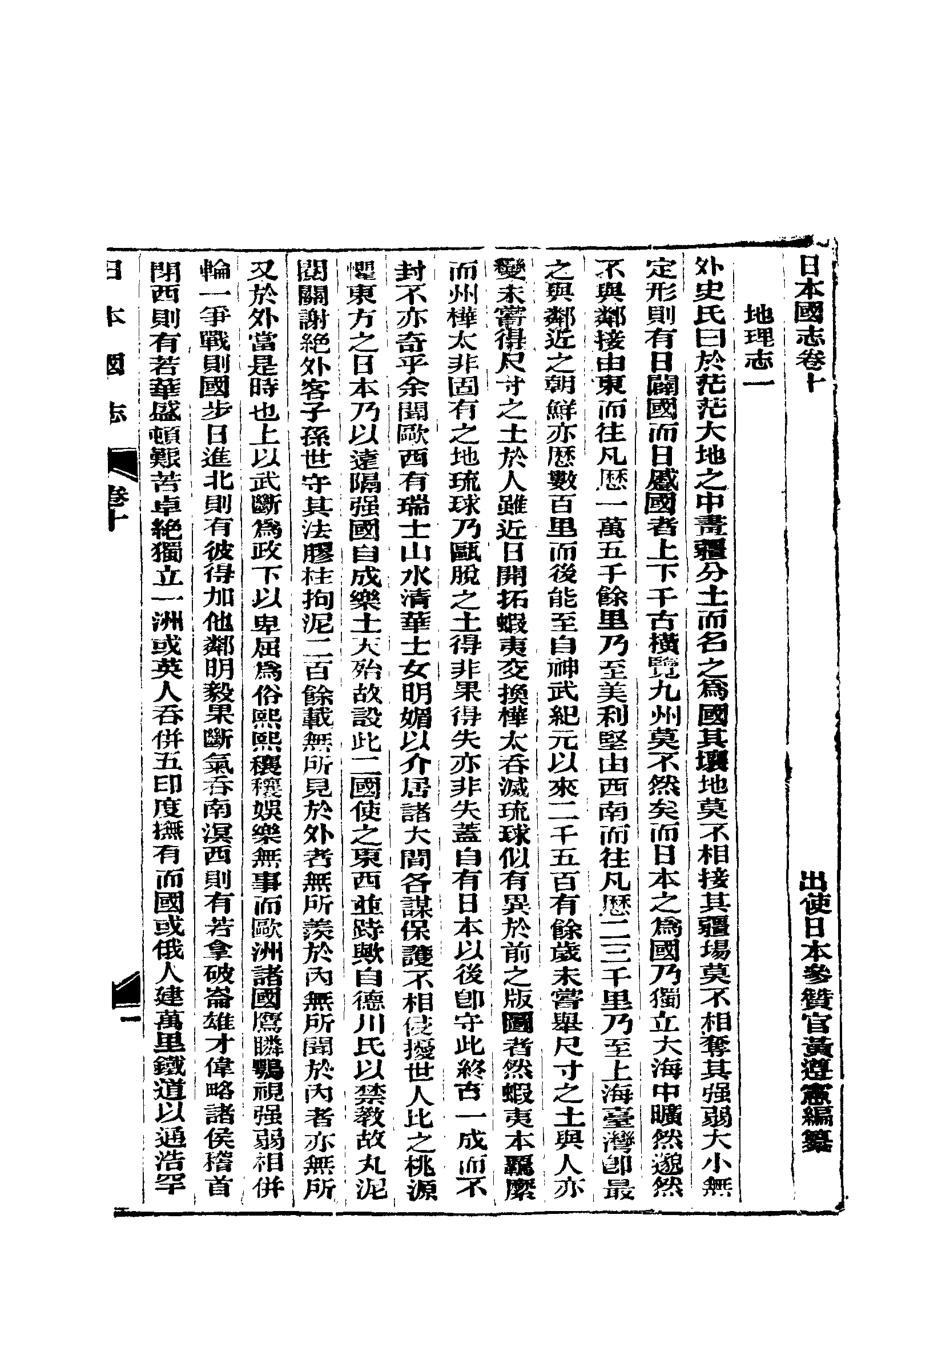 日本國志卷十
出使日本參贊官黃遵憲編纂
地理志一
外史氏曰於茫茫大地之中畫疆分土而名之爲國其壤地莫不相接其疆場莫不相奪其强弱大小無
定形則有日闢國而日蹙國者上下千古橫覽九州莫不然矣而日本之爲國乃獨立大海中曠然邈然
不與鄰接由東而往凡歷一萬五千餘里乃至美利堅由西南而往凡歷二三千里乃至上海臺灣卽最
之與鄰近之朝鮮亦歷數百里而後能至自神武紀元以來二千五百有餘歲未嘗舉尺寸之土與人亦
變未嘗得尺寸之土於人雖近日開拓蝦夷交換樺太吞滅琉球似有異於前之版圖者然蝦夷本羈縻
而州樺太非固有之地琉球乃甌脫之土得非果得失亦非失蓋自有日本以後卽守此終古一成而不
封不亦奇乎余聞歐西有瑞士山水清華士女明媚以介居諸大間各謀保護不相侵擾世人比之桃源
懼東方之日本乃以遠隔强國自成樂土天殆故設此二國使之東西並峙歟自德川氏以禁教故丸泥
閎關謝絕外客子孫世守其法膠柱拘泥二百餘載無所見於外者無所羨於內無所聞於內者亦無所
又於外當是時也上以武斷爲政下以卑屈爲俗熙熙穰穰娛樂無事而歐洲諸國鷹瞵鶚視强弱相併
輪一爭戰則國步日進北則有彼得加他鄰明毅果斷氣吞南溟西則有若拿破崙雄才偉略諸侯稽首
閉西則有若華盛頓艱苦卓絕獨立一洲或英人吞併五印度撫有而國或俄人建萬里鐵道以通浩罕
日本國志
卷十
一